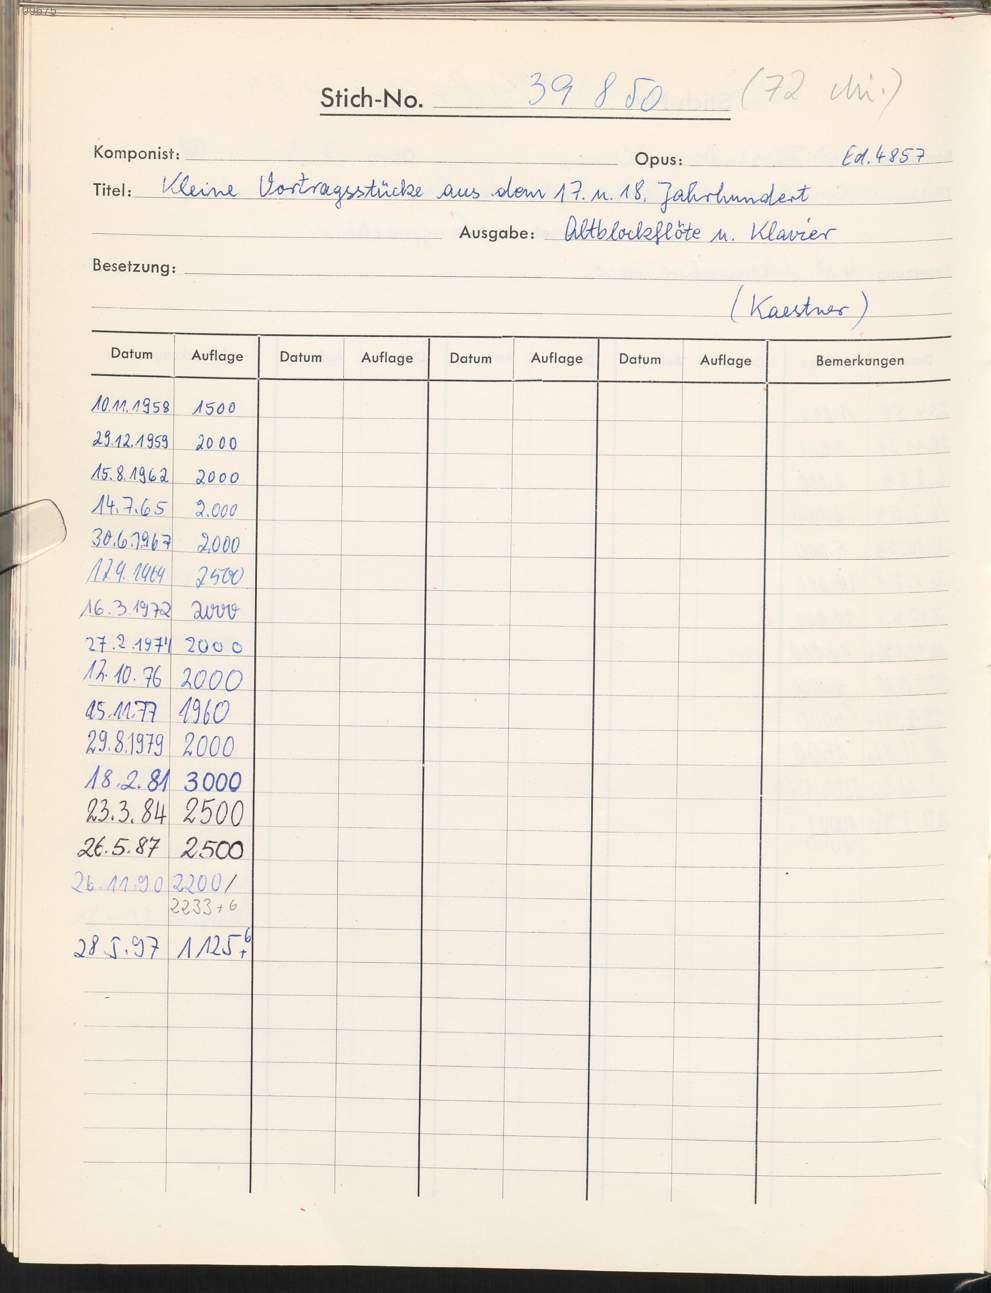 Stich-No. 39 850 (72
Komponist: Opus: Ed. 4857
Titel: Kleine Vortragsstücke aus dem 17. u. 18. Jahrhundert
Ausgabe: Altblockflöte u. Klavier
Besetzung:
(Kaestner)
Datum Auflage Datum Auflage Datum Auflage Datum Auflage Bemerkungen
10.11.1958 1500
29.12.1959 2000
15.8.1962 2000
14.7.65 2.000
30.6.1967 2000
2500
16.3.1972 2000
27.2.1974 2000
12.10.76 2000
15.11.77 1960
29.8.1979 2000
18.2.81 3000
23.3.84 2500
26.5.87 2500
26.11.90 2200/
2233+6
28.5.97 1125+6